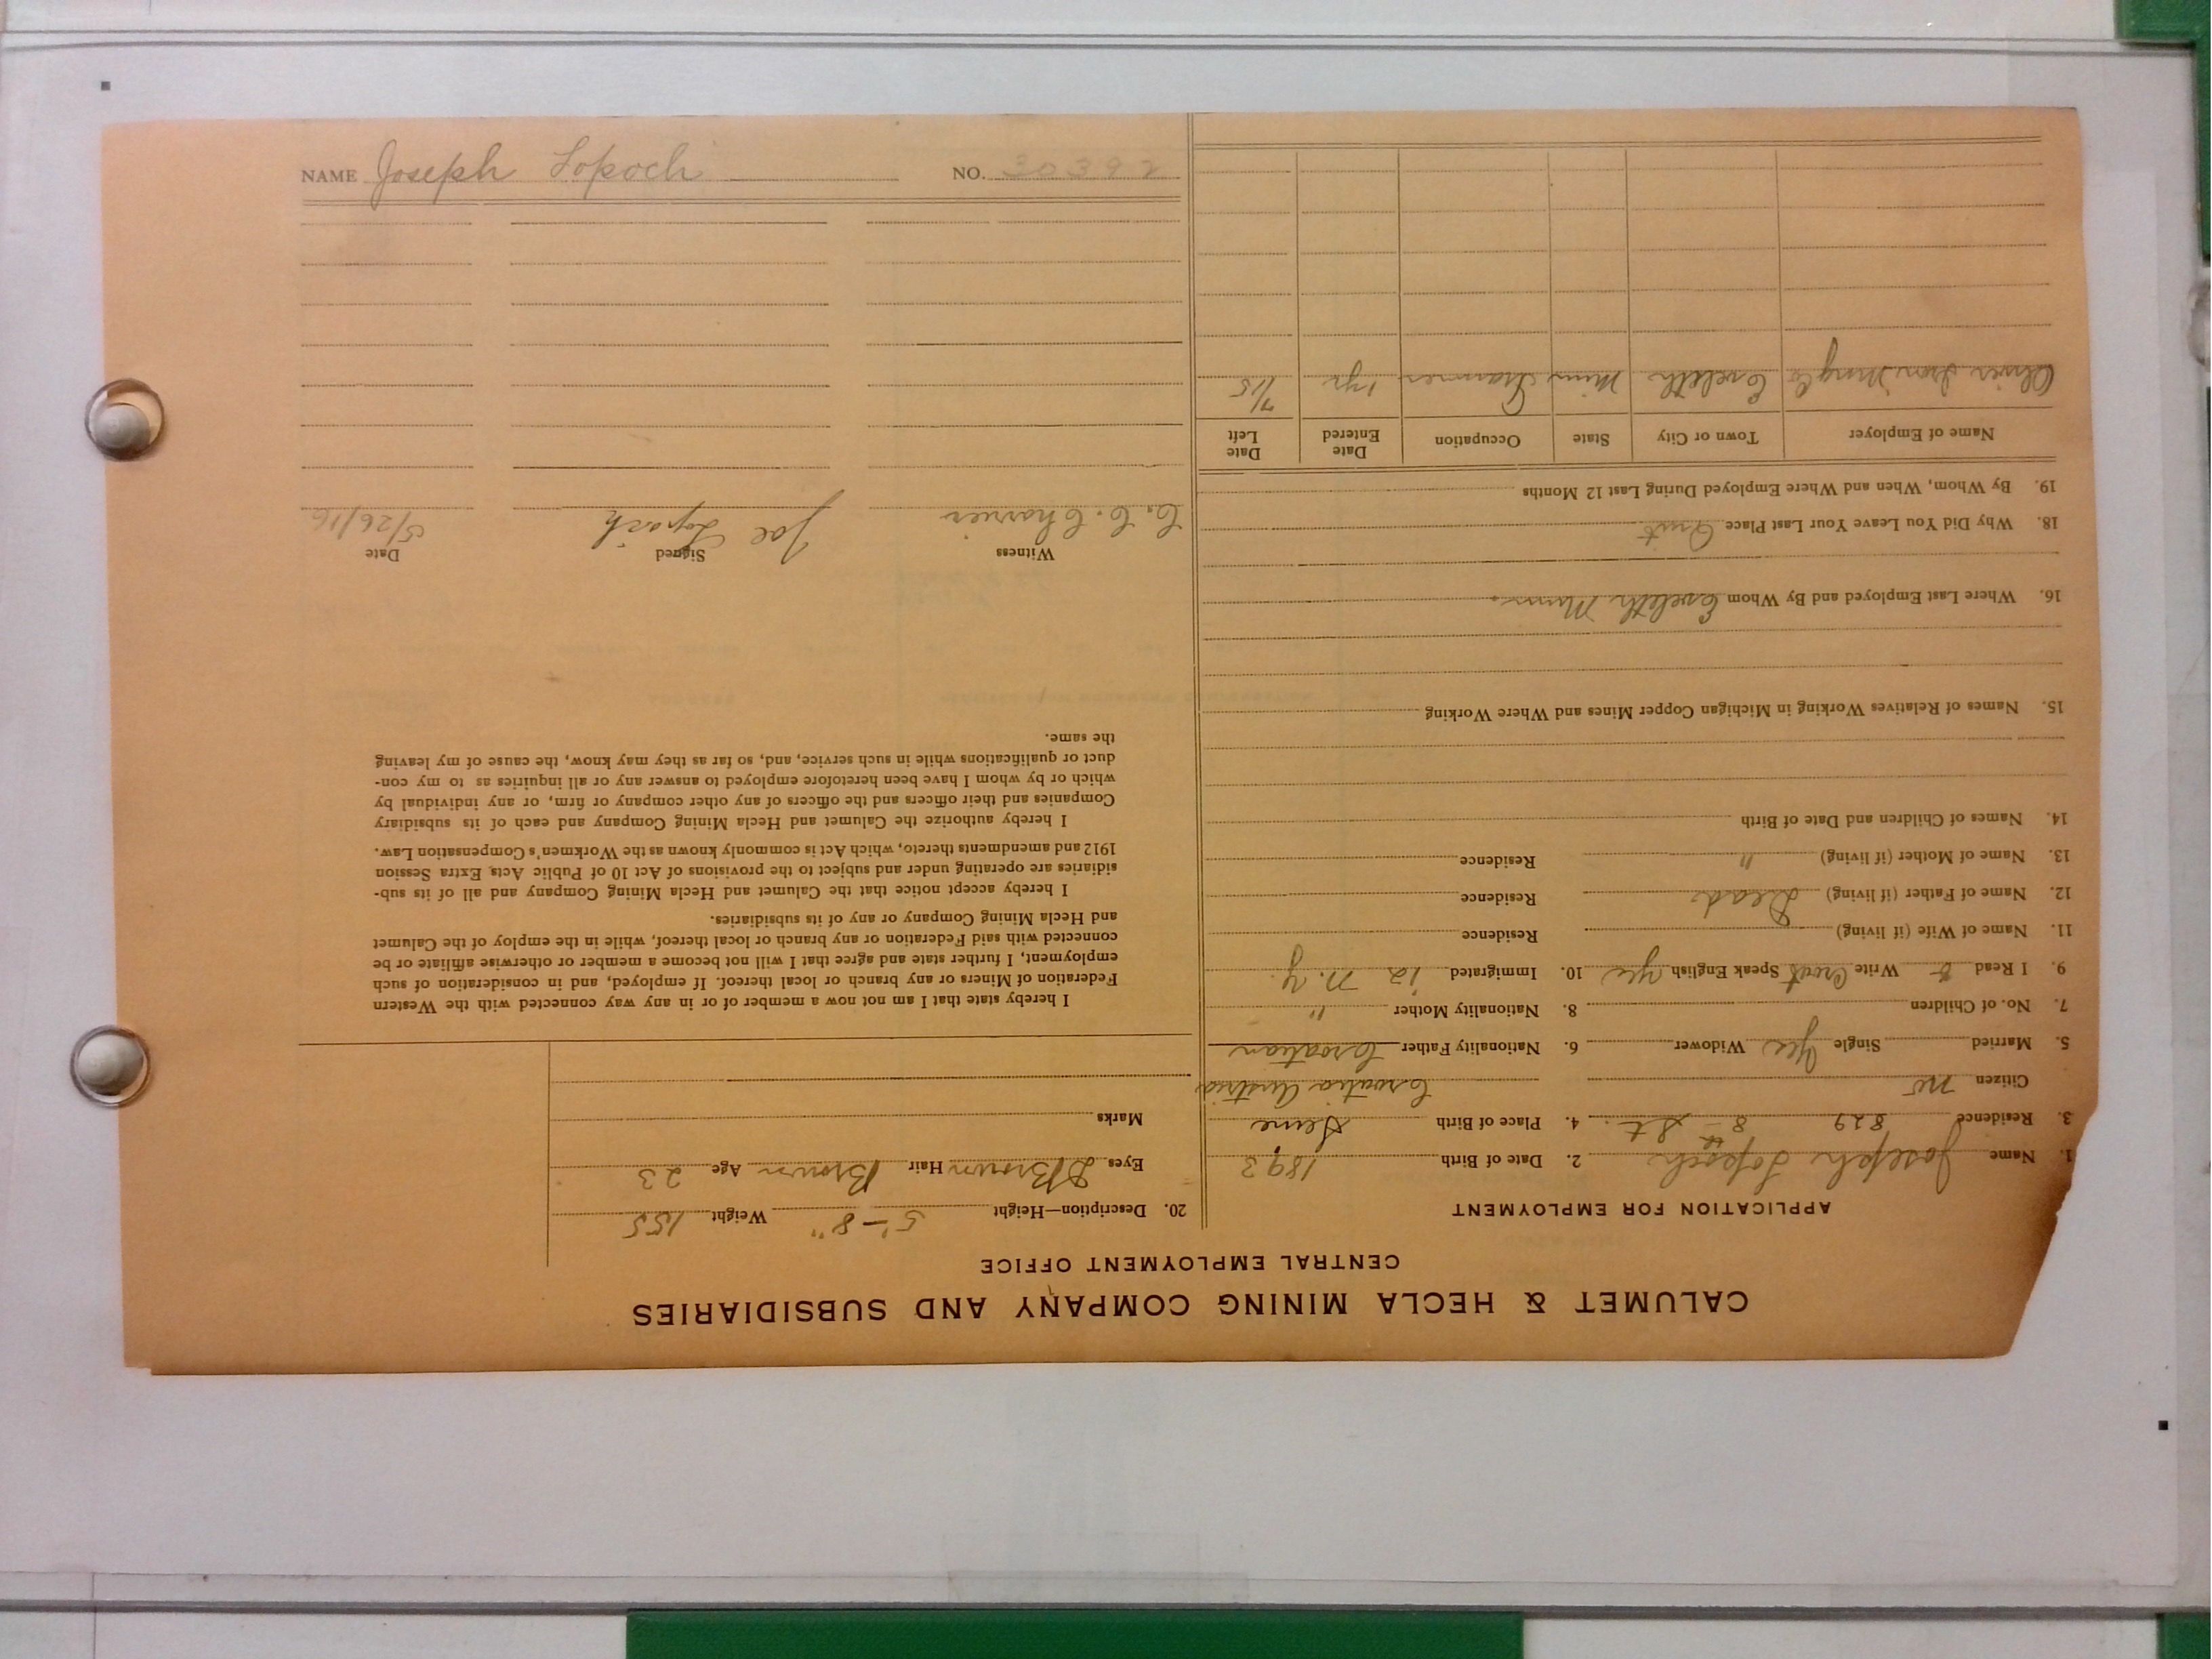 NAME Joseph Lopoch NO. 30392
CALUMET & HECLA MINING COMPANY AND SUBSIDIARIES
CENTRAL EMPLOYMENT OFFICE
APPLICATION FOR EMPLOYMENT
1. Name Joseph Lopoch 2. Date of Birth 1893
3. Residence 829 8th St. 4. Place of Birth
Citizen no Croatia Austria
5. Married Single Yes Widower 6. Nationality Father Croatian
7. No. of Children 8. Nationality Mother "
9. I Read & Write Croat Speak English yes 10. Immigrated 12 N.Y.
11. Name of Wife (if living) Residence
12. Name of Father (if living) Dead Residence
13. Name of Mother (if living) " Residence
14. Names of Children and Date of Birth
15. Names of Relatives Working in Michigan Copper Mines and Where Working
16. Where Last Employed and By Whom Eveleth Minn.
18. Why Did You Leave Your Last Place Quit
19. By Whom, When and Where Employed During Last 12 Months
Name of Employer Town or City State Occupation Date Entered Date Left
Oliver Iron Mng Co Eveleth Minn Trammer 1 yr 7/15
20. Description—Height 5'-8" Weight 155
Eyes D Brown Hair Brown Age 23
Marks
I hereby state that I am not now a member of or in any way connected with the Western
Federation of Miners or any branch or local thereof. If employed, and in consideration of such
employment, I further state and agree that I will not become a member or otherwise affiliate or be
connected with said Federation or any branch or local thereof, while in the employ of the Calumet
and Hecla Mining Company or any of its subsidiaries.
I hereby accept notice that the Calumet and Hecla Mining Company and all of its sub-
sidiaries are operating under and subject to the provisions of Act 10 of Public Acts, Extra Session
1912 and amendments thereto, which Act is commonly known as the Workmen's Compensation Law.
I hereby authorize the Calumet and Hecla Mining Company and each of its subsidiary
Companies and their officers and the officers of any other company or firm, or any individual by
which or by whom I have been heretofore employed to answer any or all inquiries as to my con-
duct or qualifications while in such service, and, so far as they may know, the cause of my leaving
the same.
Witness Signed Date
C. C. Charrier Joe Lopoch 5/26/16